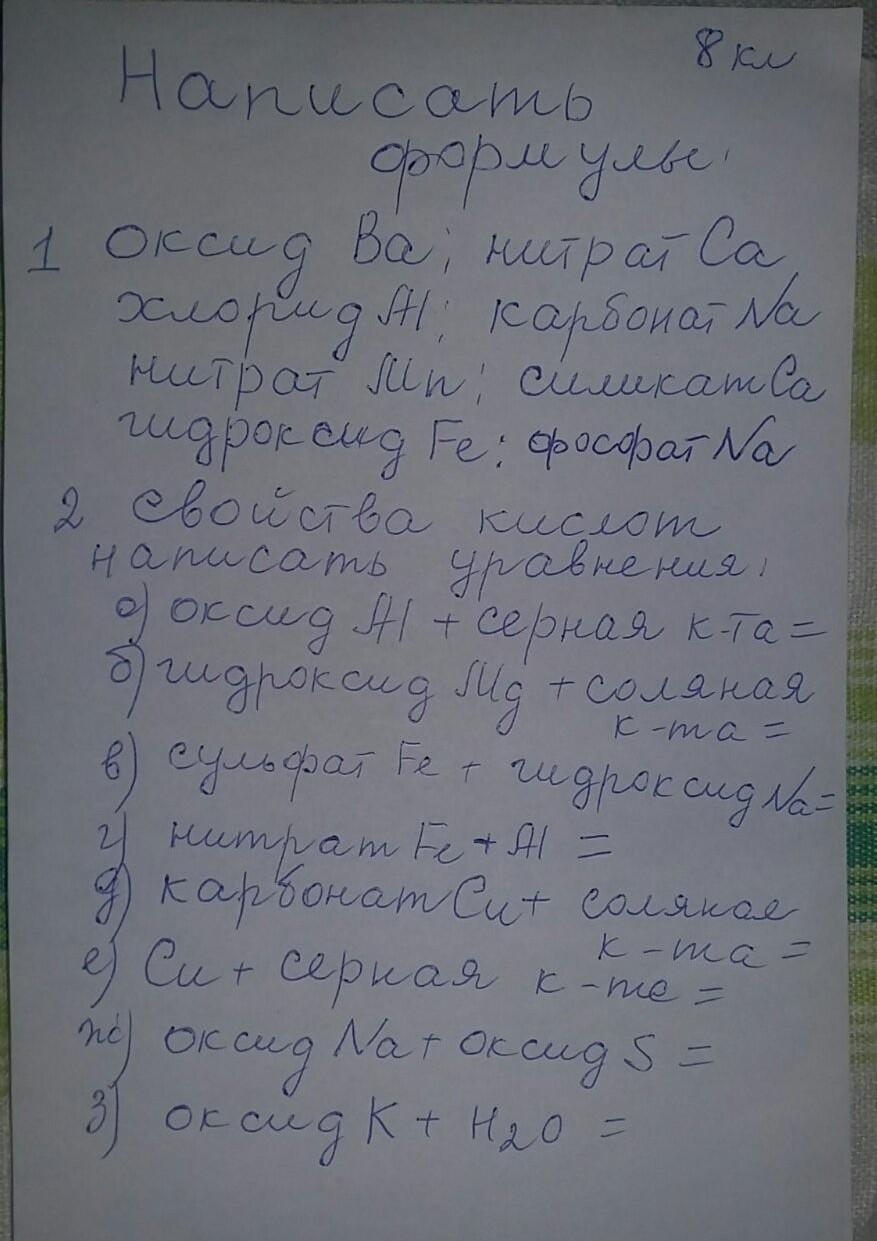 8 кл
Написать
формулы:
1 оксид Ba; нитрат Ca
хлорид Al; карбонат Na
нитрат Mn; силикат Ca
гидроксид Fe; фосфат Na
2 свойства кислот
написать уравнения:
а) оксид Al + серная к-та =
б) гидроксид Mg + соляная
к-та =
в) сульфат Fe + гидроксид Na =
г) нитрат Fe + Al =
д) карбонат Cu + соляная
к-та =
е) Cu + серная к-та =
ж) оксид Na + оксид S =
з) оксид K + H2O =